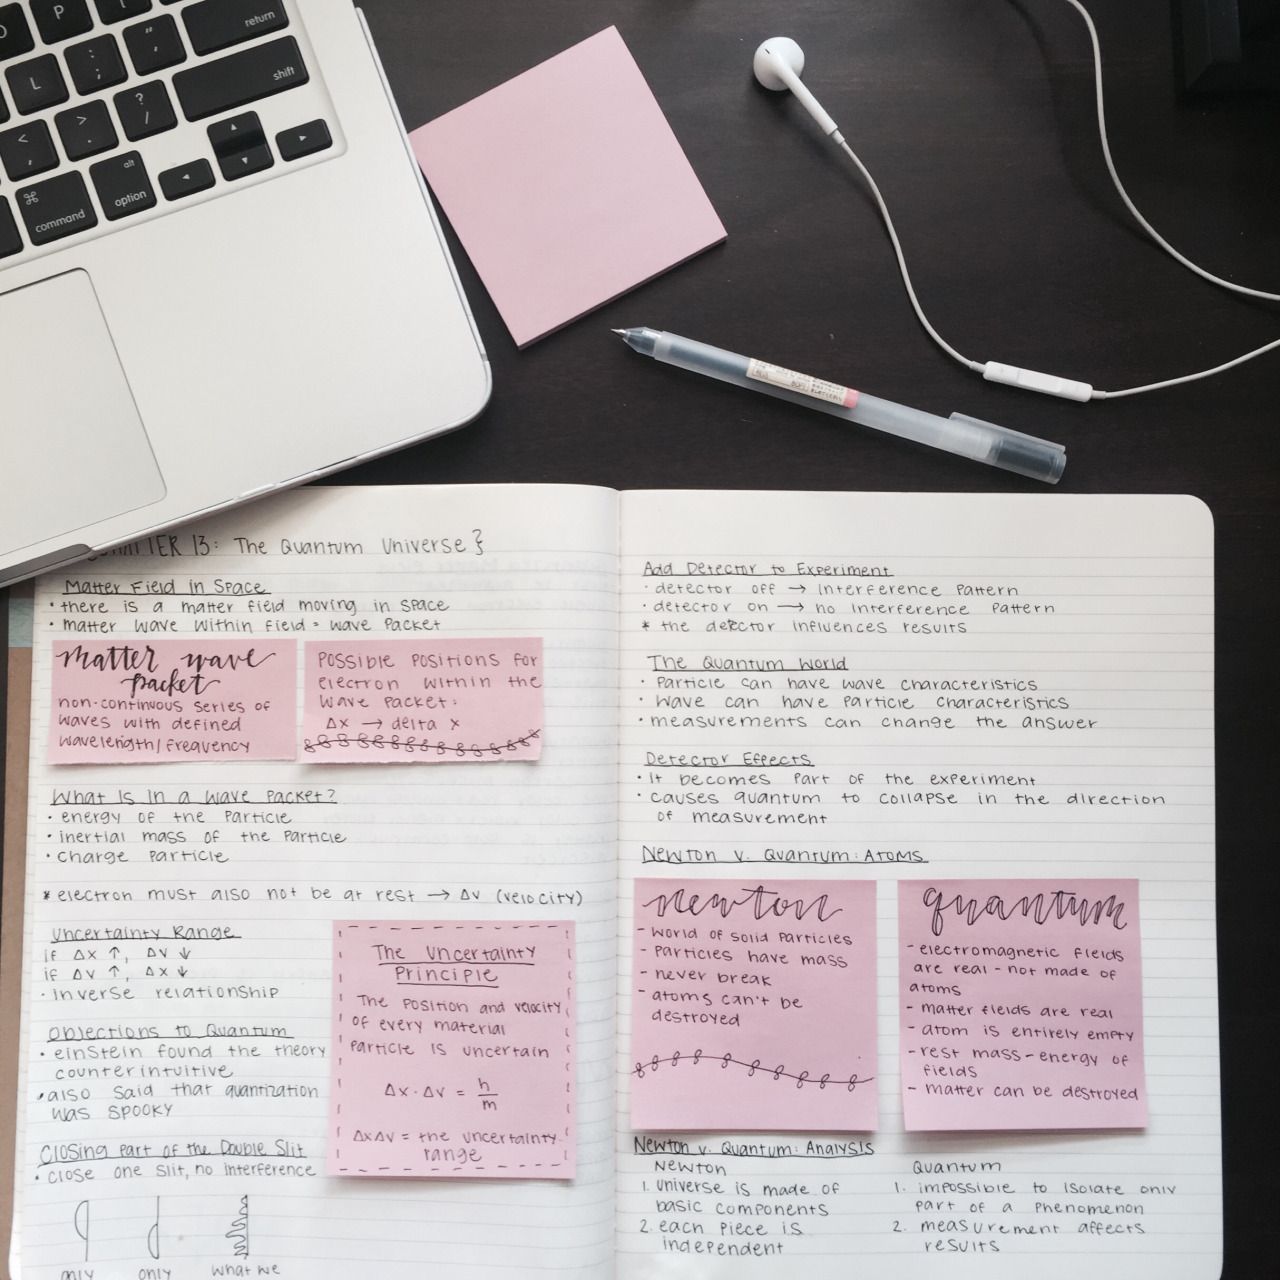 P
return
L
:
;
"
'
shift
<
,
>
.
?
/
⌘
command
alt
option
13: The Quantum Universe }
Matter Field in Space
• there is a matter field moving in space
• matter wave within field = wave packet
matter wave
packet
non-continuous series of
waves with defined
wavelength/frequency
possible positions for
electron within the
wave packet:
Δx → delta x
What is in a wave packet?
• energy of the particle
• inertial mass of the particle
• charge particle
* electron must also not be at rest → Δv (velocity)
Uncertainty Range
if Δx ↑, Δv ↓
if Δv ↑, Δx ↓
• inverse relationship
The Uncertainty
Principle
The position and velocity
of every material
particle is uncertain
Δx · Δv = h/m
ΔxΔv = the uncertainty
range
Objections to Quantum
• einstein found the theory
counterintuitive
• also said that quantization
was spooky
Closing part of the Double Slit
• close one slit, no interference
only
only
what we
Add Detector to Experiment
• detector off → interference pattern
• detector on → no interference pattern
* the detector influences results
The Quantum World
• particle can have wave characteristics
• wave can have particle characteristics
• measurements can change the answer
Detector Effects
• it becomes part of the experiment
• causes quantum to collapse in the direction
of measurement
Newton v. Quantum: Atoms
newton
- world of solid particles
- particles have mass
- never break
- atoms can't be
destroyed
quantum
- electromagnetic fields
are real - not made of
atoms
- matter fields are real
- atom is entirely empty
- rest mass - energy of
fields
- matter can be destroyed
Newton v. Quantum: Analysis
Newton
1. universe is made of
basic components
2. each piece is
independent
Quantum
1. impossible to isolate only
part of a phenomenon
2. measurement affects
results